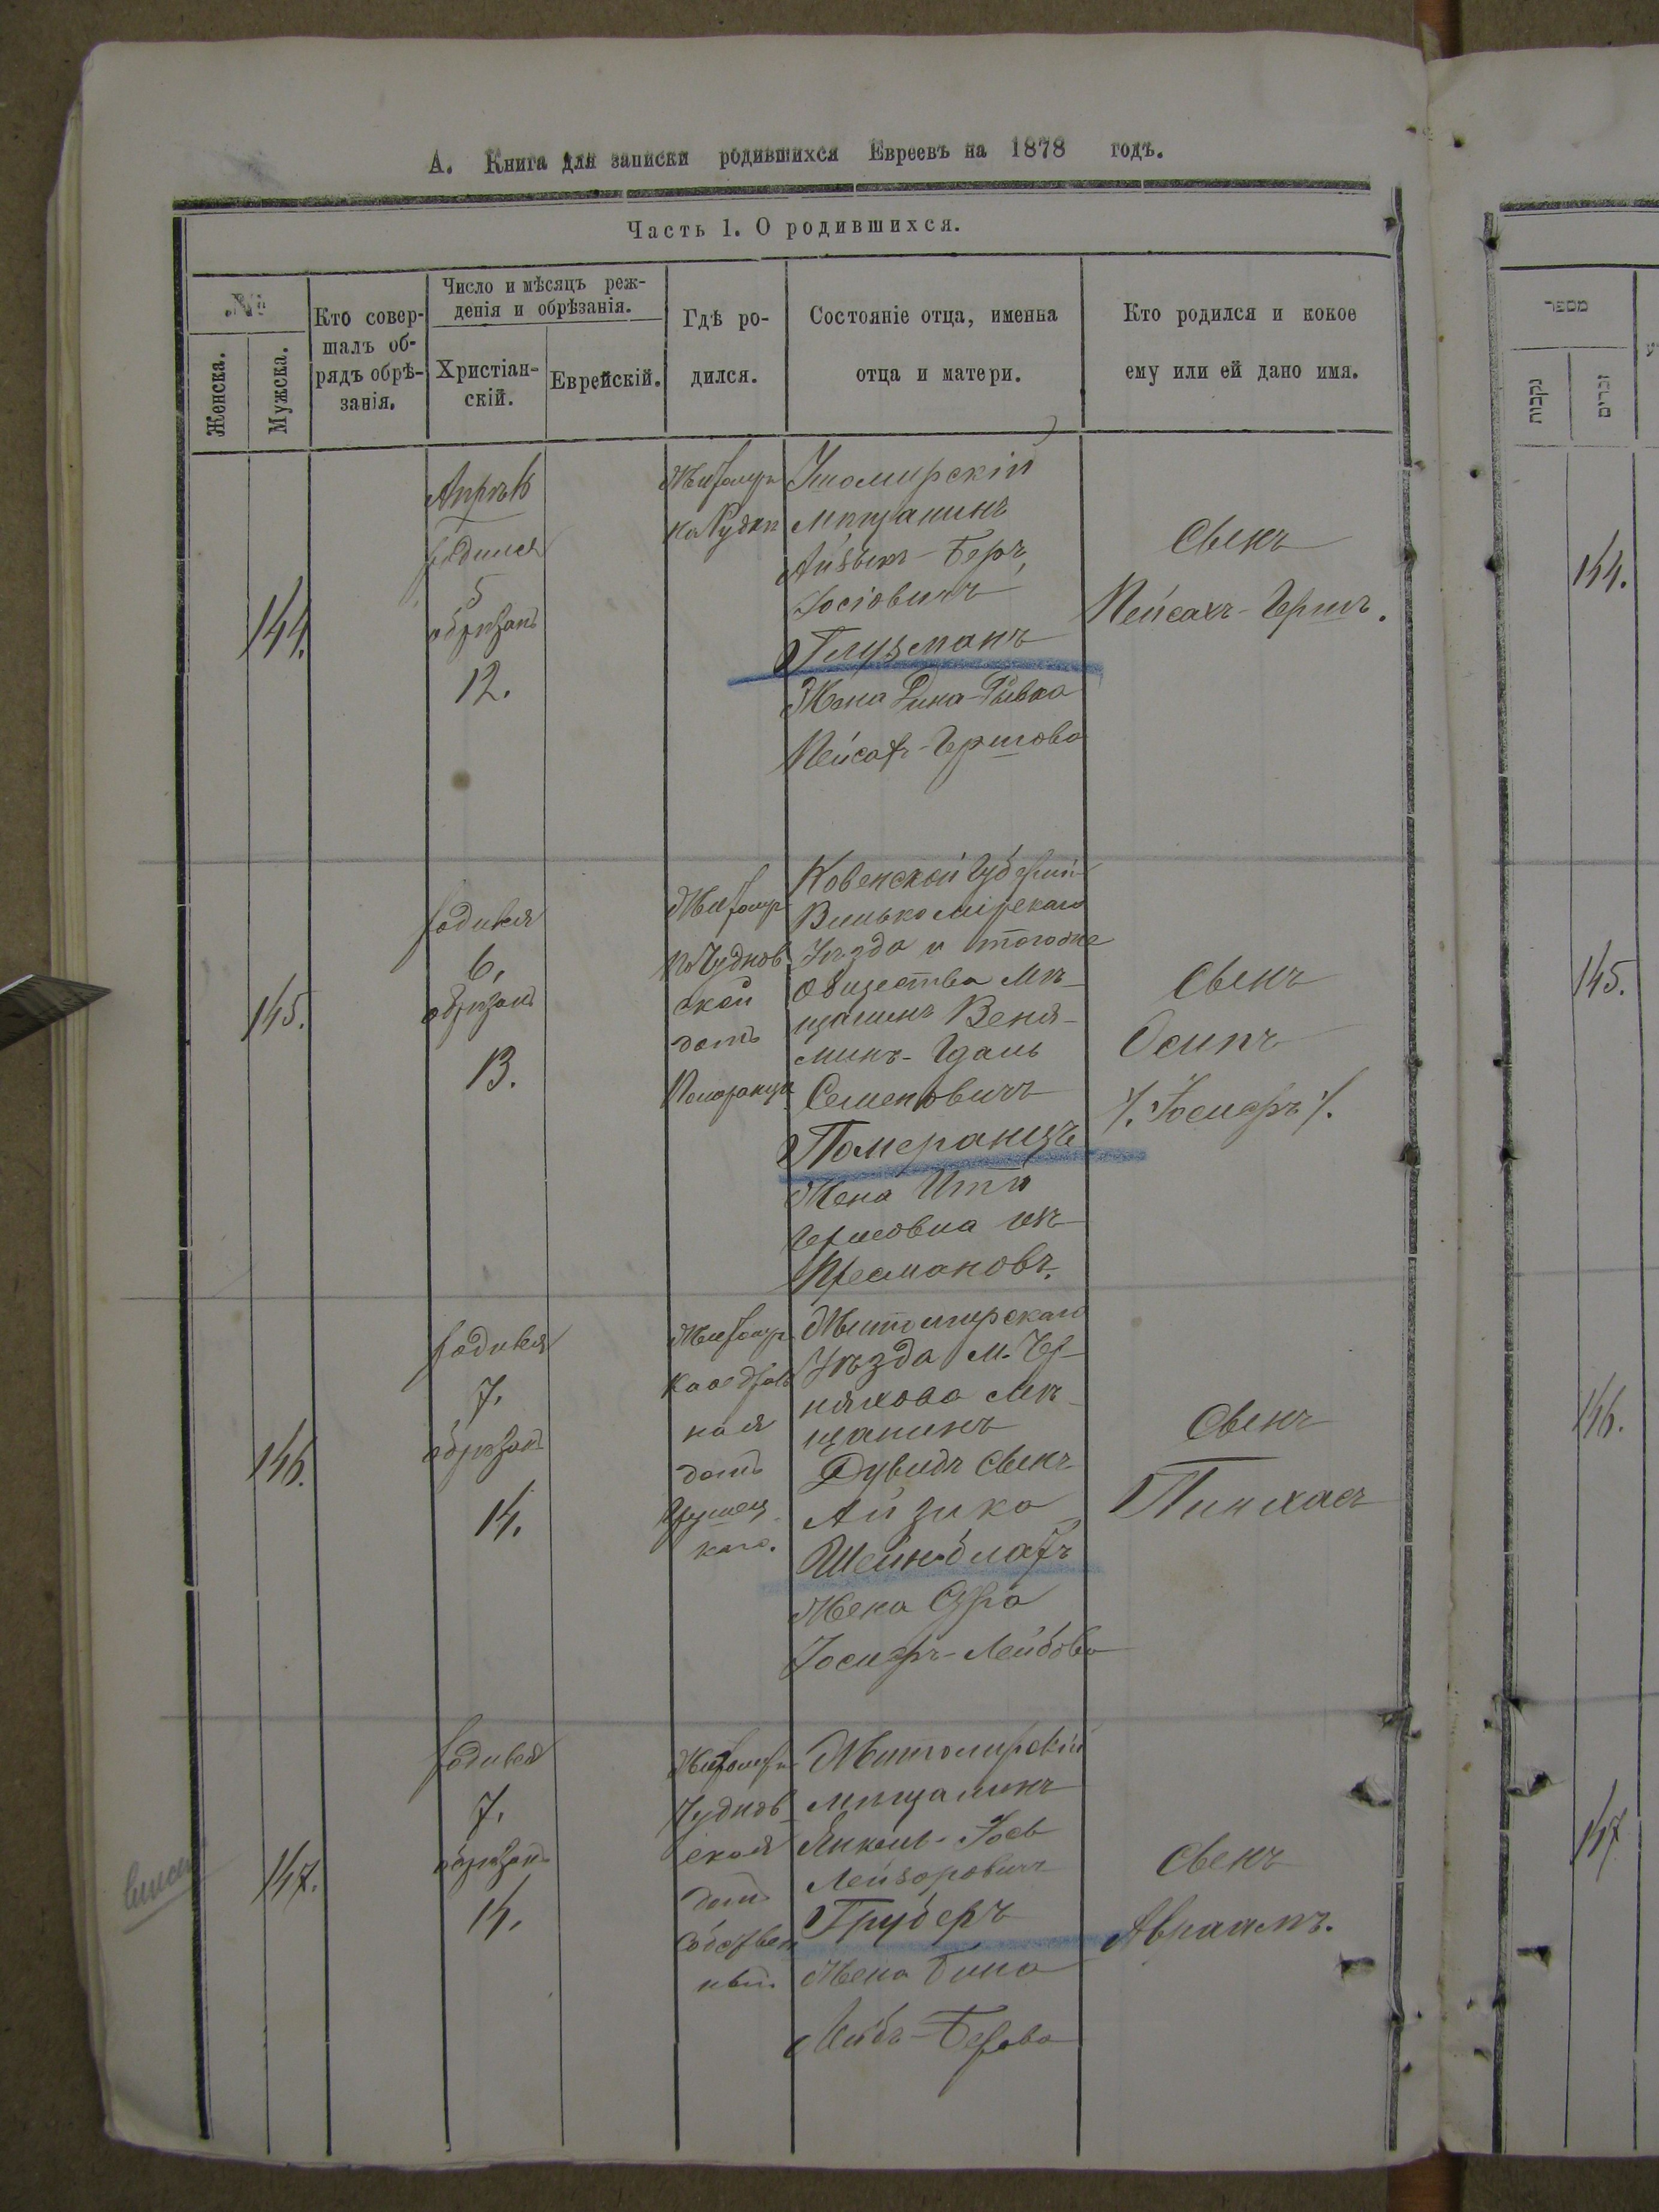 А. Книга для записки родившихся Евреевъ на 1878 годъ.
Часть 1. О родившихся.
№
Женска.
Мужска.
Кто совер-
шалъ об-
рядъ обрѣ-
занія.
Число и мѣсяцъ реж-
денія и обрѣзанія.
Христіан-
скій.
Еврейскій.
Гдѣ ро-
дился.
Состояніе отца, именна
отца и матери.
Кто родился и кокое
ему или ей дано имя.
144.
родился
5
обрѣзанъ
12.
Житомиръ
мѣщанинъ
Айзыкъ-Беръ
Іосіовичъ
Глузманъ
Жена Дина-Ривка
Пейсахъ-Гершова
Сынъ
Пейсахъ-Гершъ.
145.
родился
6.
обрѣзанъ
13.
Житомир
Чуднов
ской
домъ
Померанца
Ковенской Губерніи
Вилькомірскаго
Уѣзда и тогоже
общества мѣ-
щанинъ Веня-
минъ-Гдаль
Семеновичъ
Померанцъ
Жена Итта
Гершовна
Сынъ
Осипъ
/. Іосиеръ /.
146.
родился
7.
обрѣзанъ
14.
Житомир
Каѳедраль
ная
домъ
каго.
Житомирскаго
Уѣзда м. Чер-
няхова мѣ-
щанинъ
Дувидъ сынъ
Айзика
Шейнблатъ
Жена Сура
Іосиеръ-Лейбова
Сынъ
Пинхасъ
147.
родился
7.
обрѣзанъ
14.
Житомиръ
Чуднов
ская
домъ
собствен
ный
Житомирскій
мѣщанинъ
Янкель-Іось
Лейзоровичъ
Груберъ
Жена Бина
Лейбъ-Берова
Сынъ
Авраамъ.
מספר
נקבות
זכרים
144.
145.
146.
147